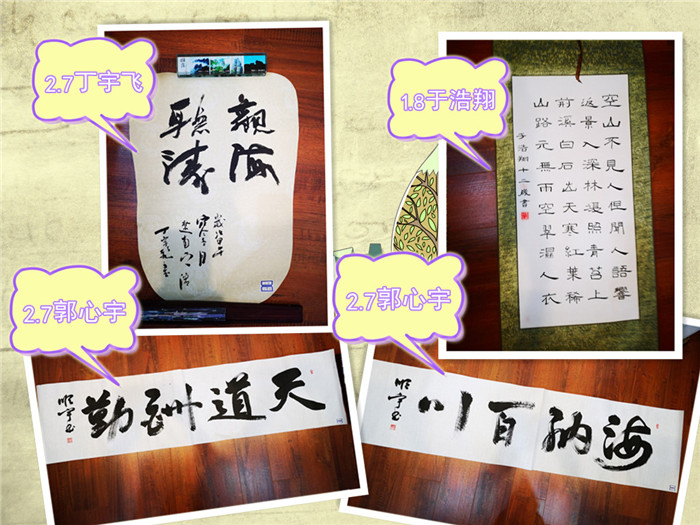 2.7丁宇飞
觀海
聽濤
1.8于浩翔
空山不見人但聞人語響
返景入深林復照青苔上
前溪白石出天寒紅葉稀
山路元無雨空翠濕人衣
于浩翔十二歲書
2.7郭心宇
天道酬勤
2.7郭心宇
海納百川